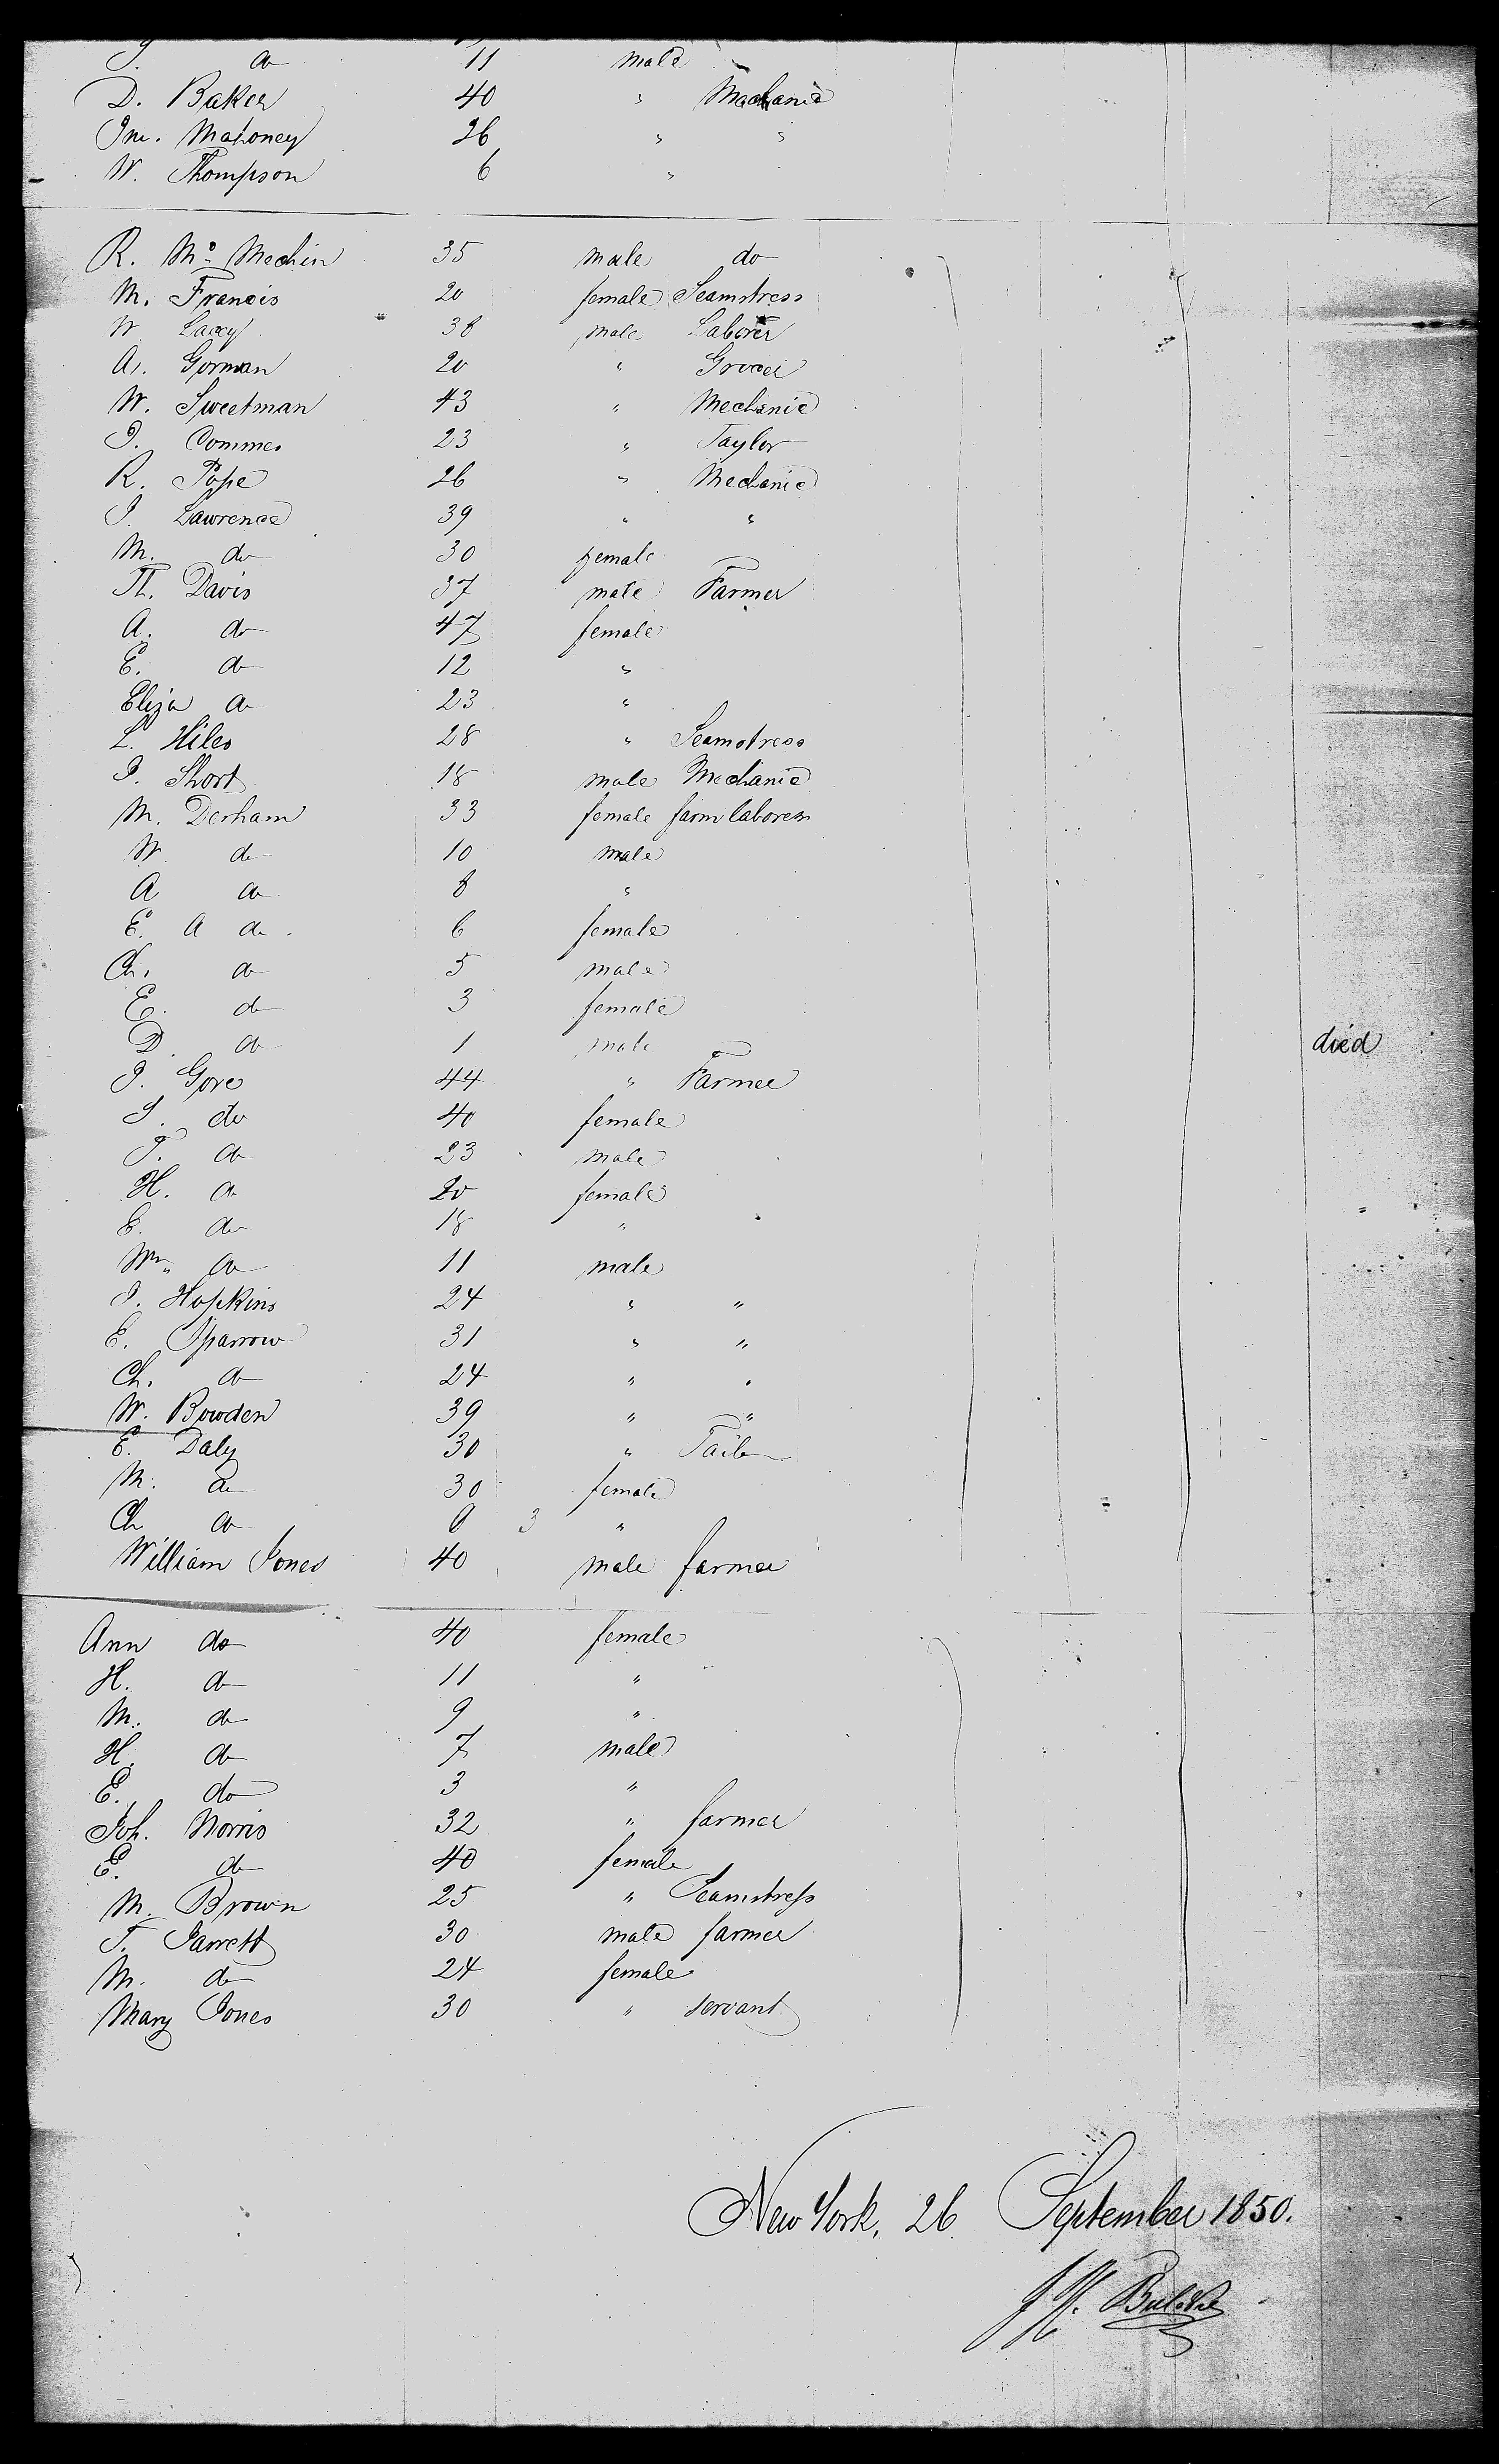 J. do 11 male
D. Baker 40 " Mechanic
Jno. Mahoney 26 " "
W. Thompson 6 "
R. Mc Mechin 35 male do
M. Francis 20 female Seamstress
W. Lacey 38 male Laborer
A. Gorman 20 " Grocer
W. Sweetman 43 " Mechanic
J. Commes 23 " Taylor
R. Pope 26 " Mechanic
J. Lawrence 39 " "
M. do 30 female
Th. Davis 37 male Farmer
A. do 47 female
E. do 12 "
Eliza do 23 "
L. Hiles 28 " Seamstress
J. Short 18 male Mechanic
M. Derham 33 female farm laboress
W. do 10 male
A do 8 "
E. A do. 6 female
Ch. do 5 male
E. do 3 female
D. do 1 male died
J. Gore 44 " Farmer
S. do 40 female
T. do 23 male
H. do 20 female
E. do 18 "
Wm. do 11 male
J. Hopkins 24 " "
E. Sparrow 31 " "
Ch. do 24 " "
W. Bowden 39 " "
E. Daly 30 " Tailor
M. do 30 female
Ch do 0 3 "
William Jones 40 male farmer
Ann do 40 female
H. do 11 "
M. do 9 "
H. do 7 male
E. do 3 "
Joh. Norris 32 " farmer
E. do 40 female
M. Brown 25 " Seamstress
T. Jarrett 30 male farmer
M. do 24 female
Mary Jones 30 " servant
New York, 26 September 1850.